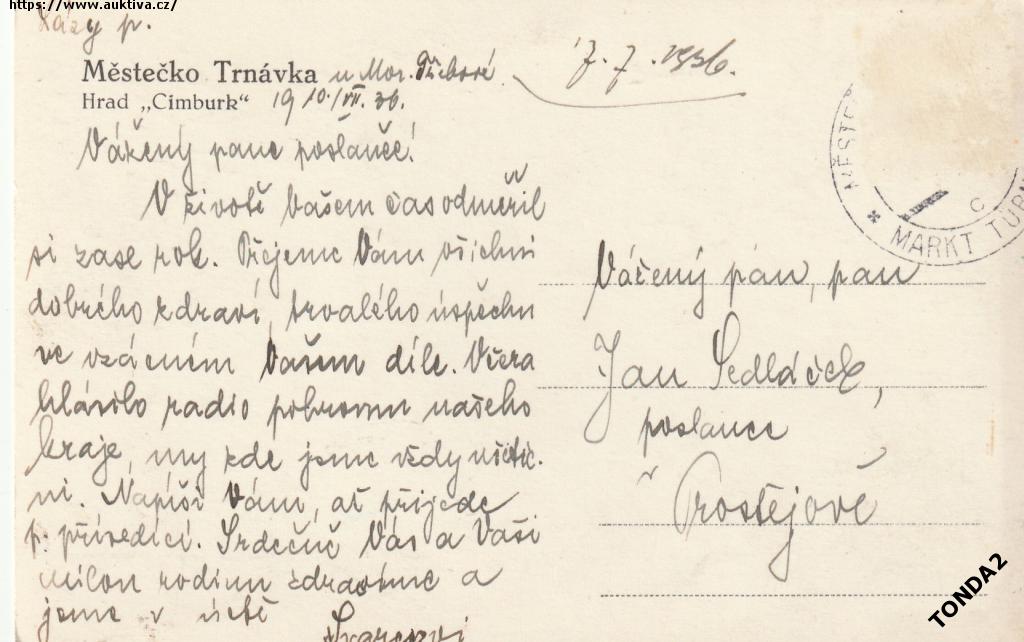 https://www.auktiva.cz/
p.
Městečko Trnávka u Mor. Třebové
7. 7. 1936.
Hrad „Cimburk“ 19 10./VII. 36.
Vážený pane poslanče!
V životě Vašem čas odměřil
si zase rok. Přejeme Vám všichni
dobrého zdraví, trvalého úspěchu
ve vzácném Vašem díle. Včera
hlásilo radio pohromu našeho
kraje, my zde jsme vždy
Napíši Vám, až přijede
p. přísedící. Srdečně Vás a Vaši
milou rodinu zdravíme a
jsme v úctě
MĚSTE
MARKT TÜR
C
Vážený pán, pan
Jan Sedláček,
poslanec
v Prostějově
TONDA2